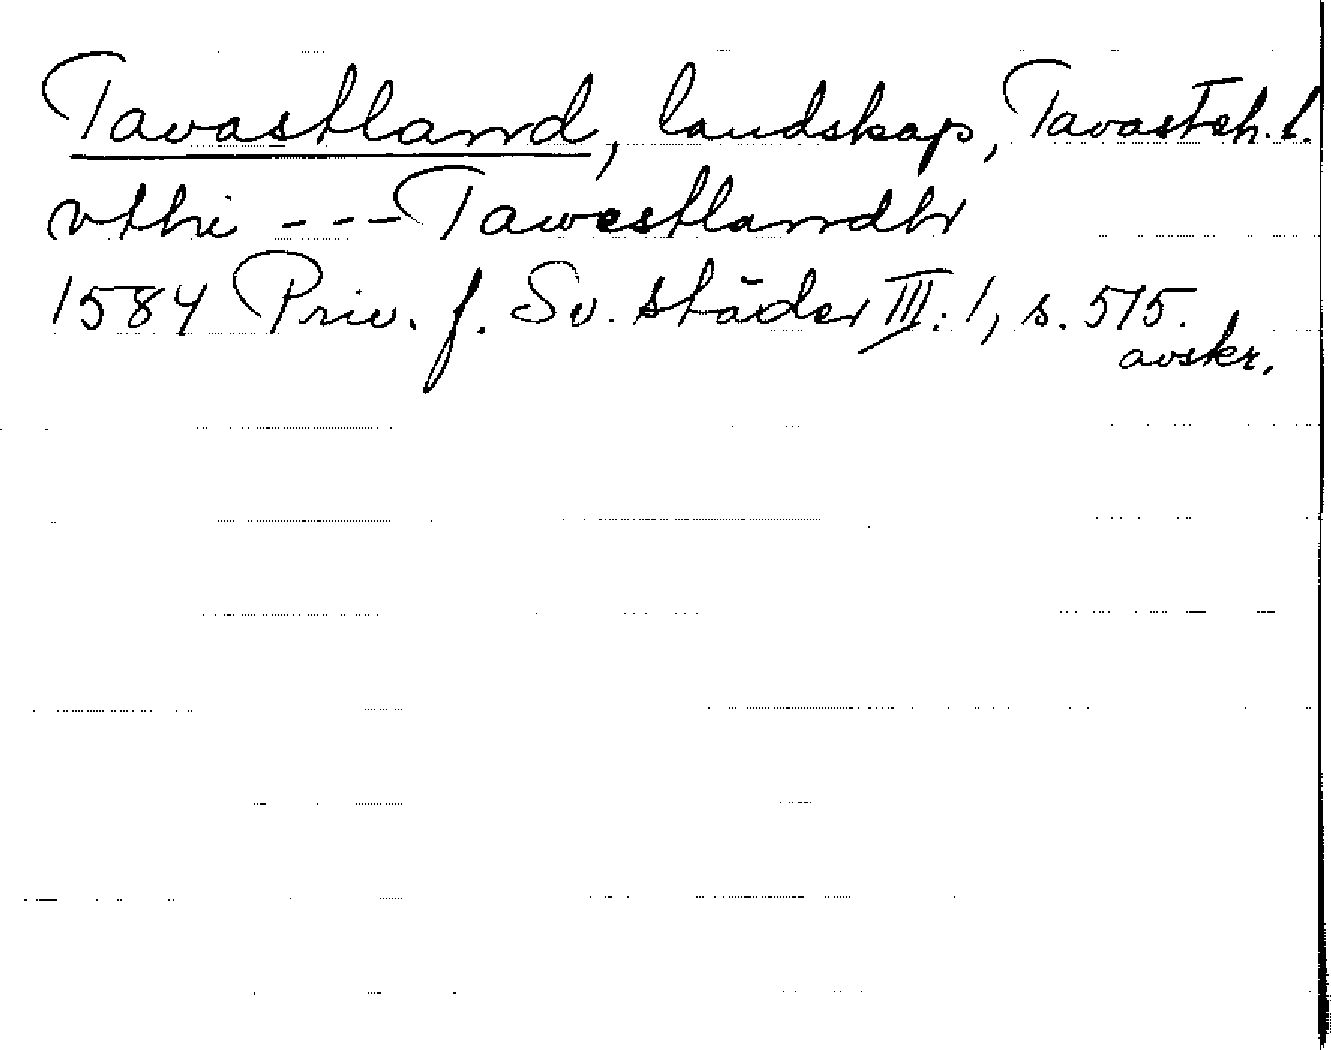 Tavastland, landskap, Tavasteh. l.
vthi --- Tawestlandh
1584 Priv. f. Sv. städer III: 1, s. 575.
avskr.